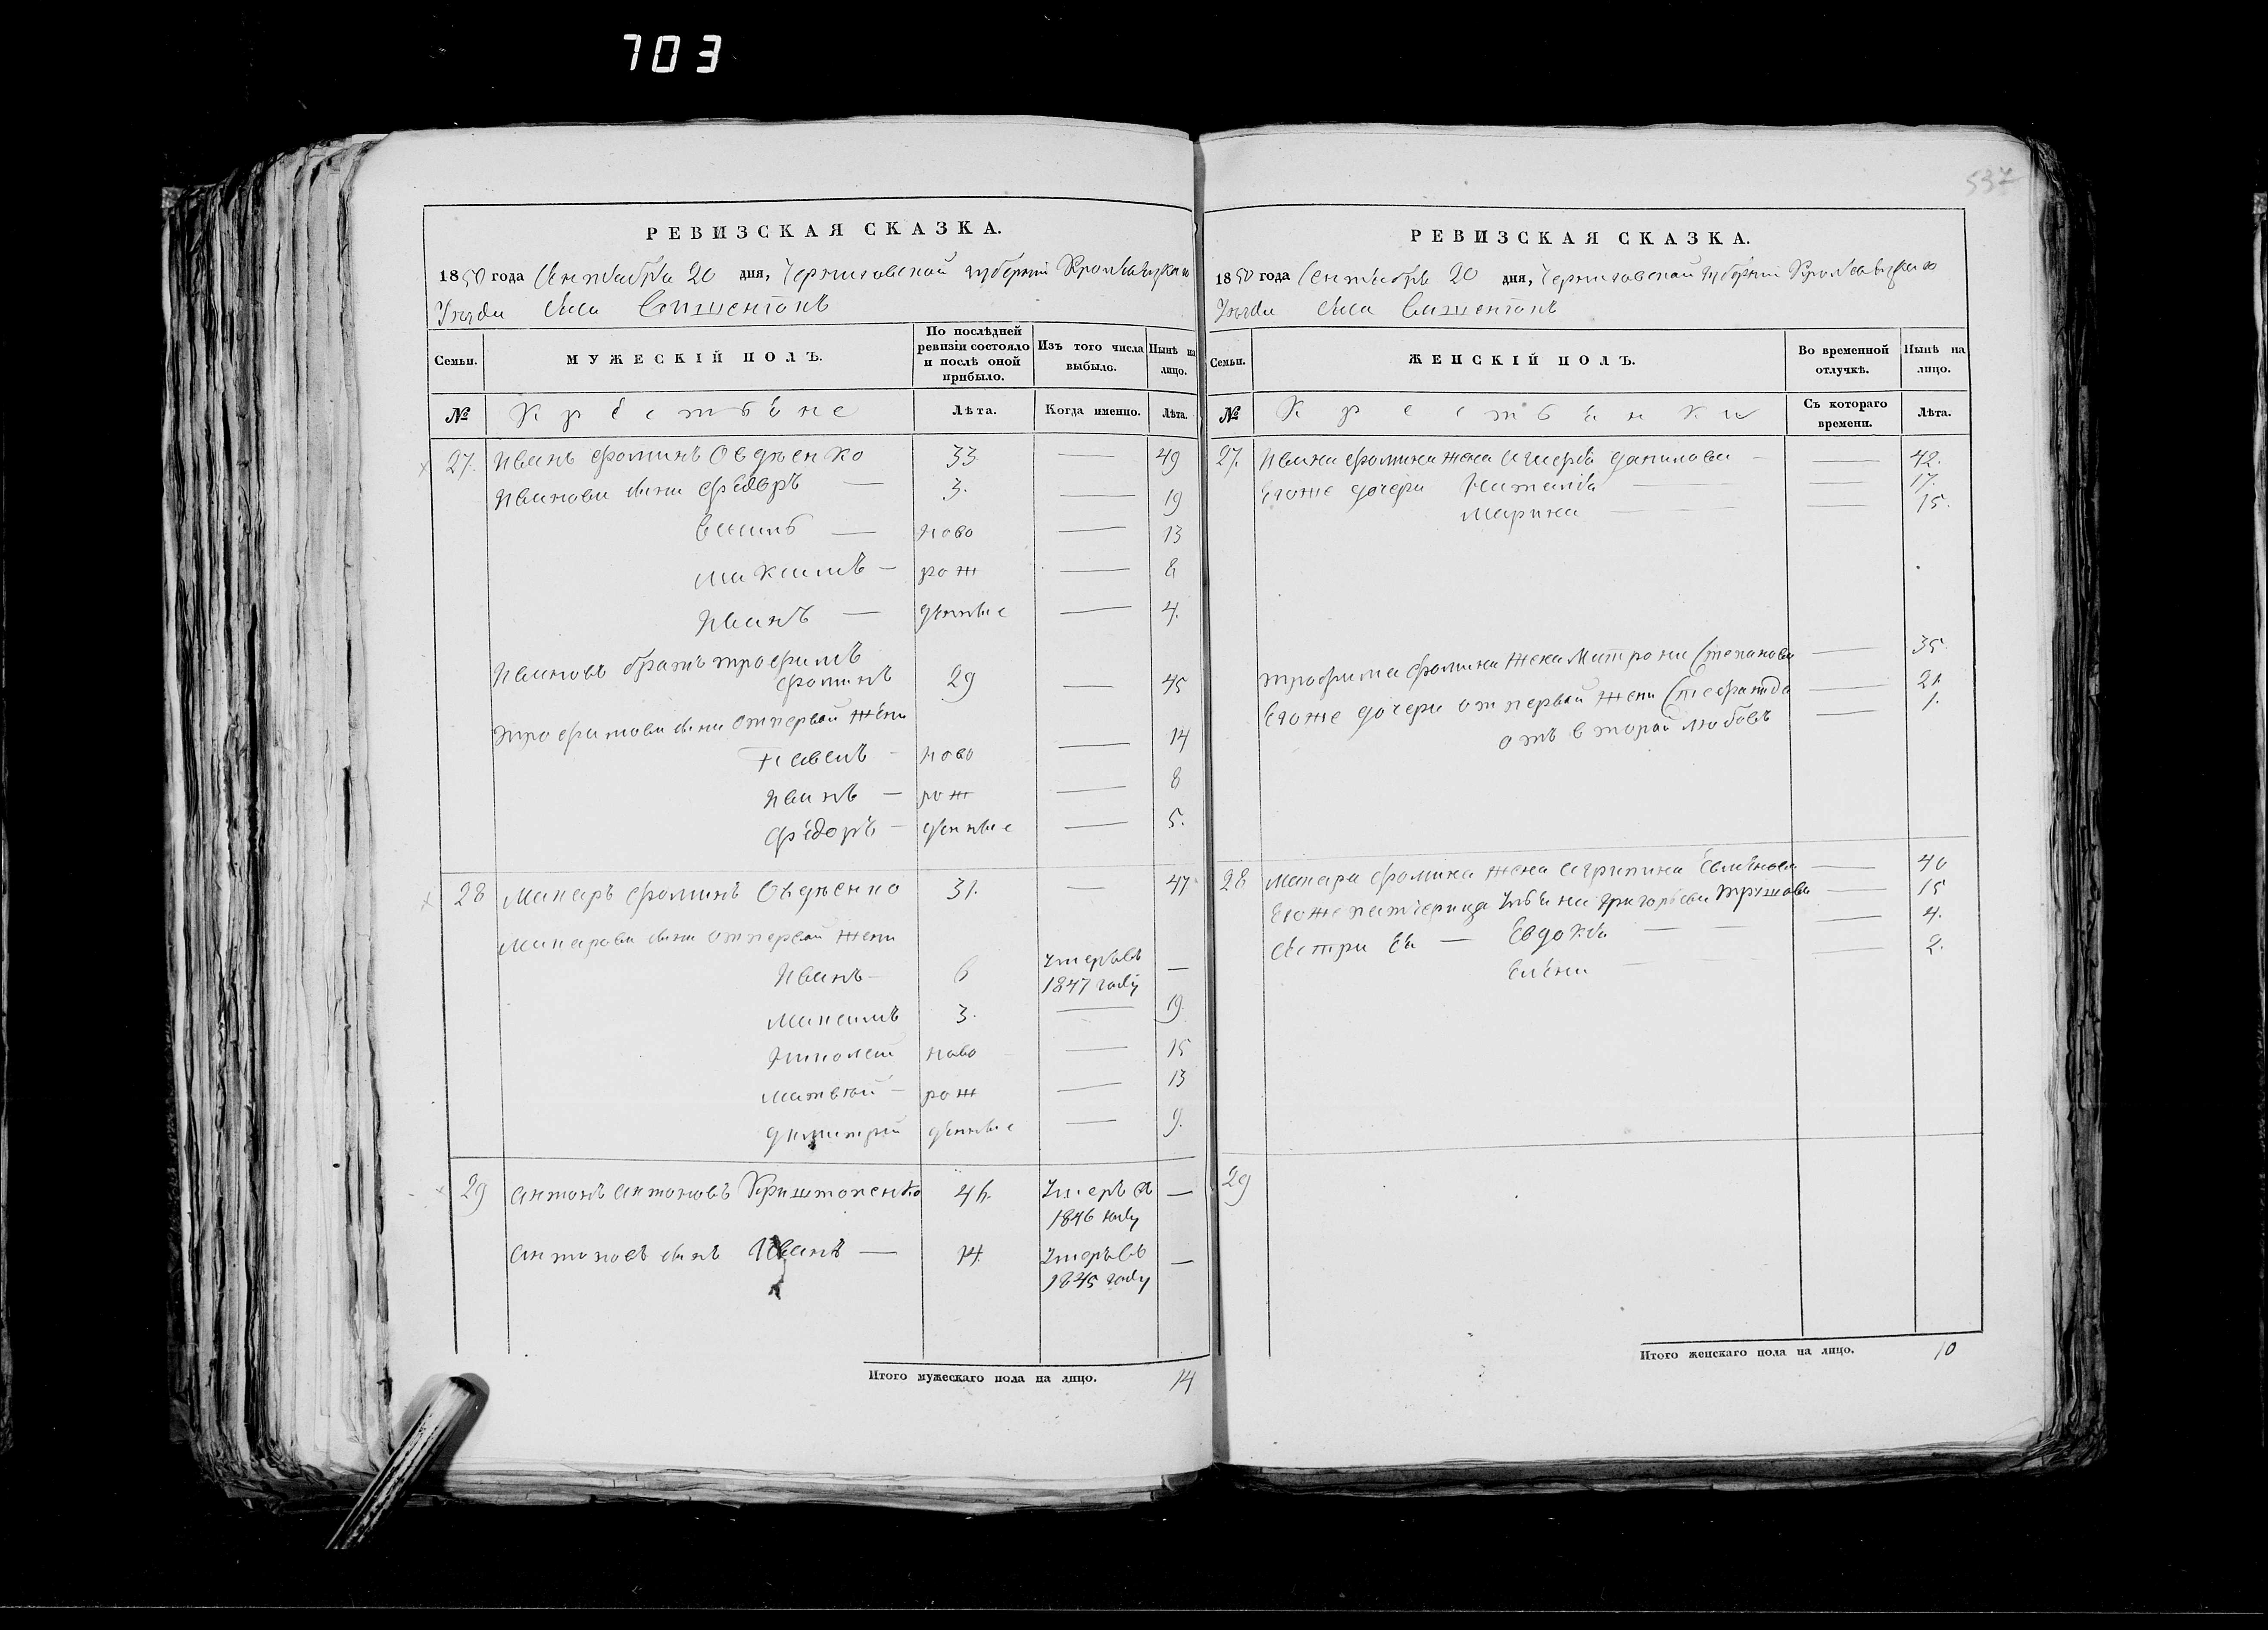 703
537
РЕВИЗСКАЯ СКАЗКА.
1850 года Сентября 20 дня, Черниговской губерніи Кролевецкаго
Уѣзда села
Семьи.
МУЖЕСКІЙ ПОЛЪ.
По послѣдней ревизіи состояло и послѣ оной прибыло.
Изъ того числа выбыло.
Нынѣ на лицо.
№
Крестьяне
Лѣта.
Когда именно.
Лѣта.
27. Иванъ Фоминъ Овдѣенко 33 — 49
Ивановы сыни Фёдоръ — 3. — 19
— ново — 13
Максимъ — рож — 8
Иванъ — денные — 4.
Ивановъ братъ Трофимъ
Фоминъ 29 — 45
Трофимовы сыни отпервой жени
Павелъ — ново — 14
Иванъ — рож — 8
Фёдоръ — денные — 5.
28 Макаръ Фоминъ Овдѣенко 31. — 47
Макаровы сыни отпервой жени
Иванъ — 6 Умеръ въ —
1847 году
Максимъ 3. — 19.
Николай ново — 15
Матвѣй — рож — 13
Димитрій денные — 9.
29 Антонъ Антоновъ Криштопенко 46. Умеръ въ —
1846 году
Антоновъ сынъ Иванъ — 14. Умеръ въ —
1845 году
Итого мужескаго пола на лицо. 14
РЕВИЗСКАЯ СКАЗКА.
1850 года Сентября 20 дня, Черниговской губерніи Кролевецкаго
Уѣзда села
Семьи.
ЖЕНСКІЙ ПОЛЪ.
Во временной отлучкѣ.
Нынѣ на лицо.
№
Крестьянки
Съ котораго времени.
Лѣта.
27. Ивана Фомина жена Данилова — — 42.
Егоже дочери Наталья — — 17.
Марина — — 15.
Трофима Фомина жена Матрона Степанова — 35.
Егоже дочери отпервой жени Стефанида — 21
отъ второй Любовъ — 1.
28 Макара Фомина жена Агрипина Емьянова — 40
Егоже патчерица Ульяна Григорьева — 15
Сестри ея — Евдокья — — 4.
Елена — — 2.
29
Итого женскаго пола на лицо. 10